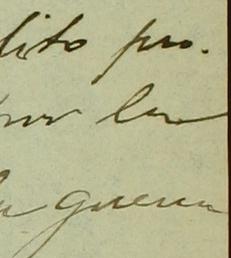 lito pro.
por la
la guerra